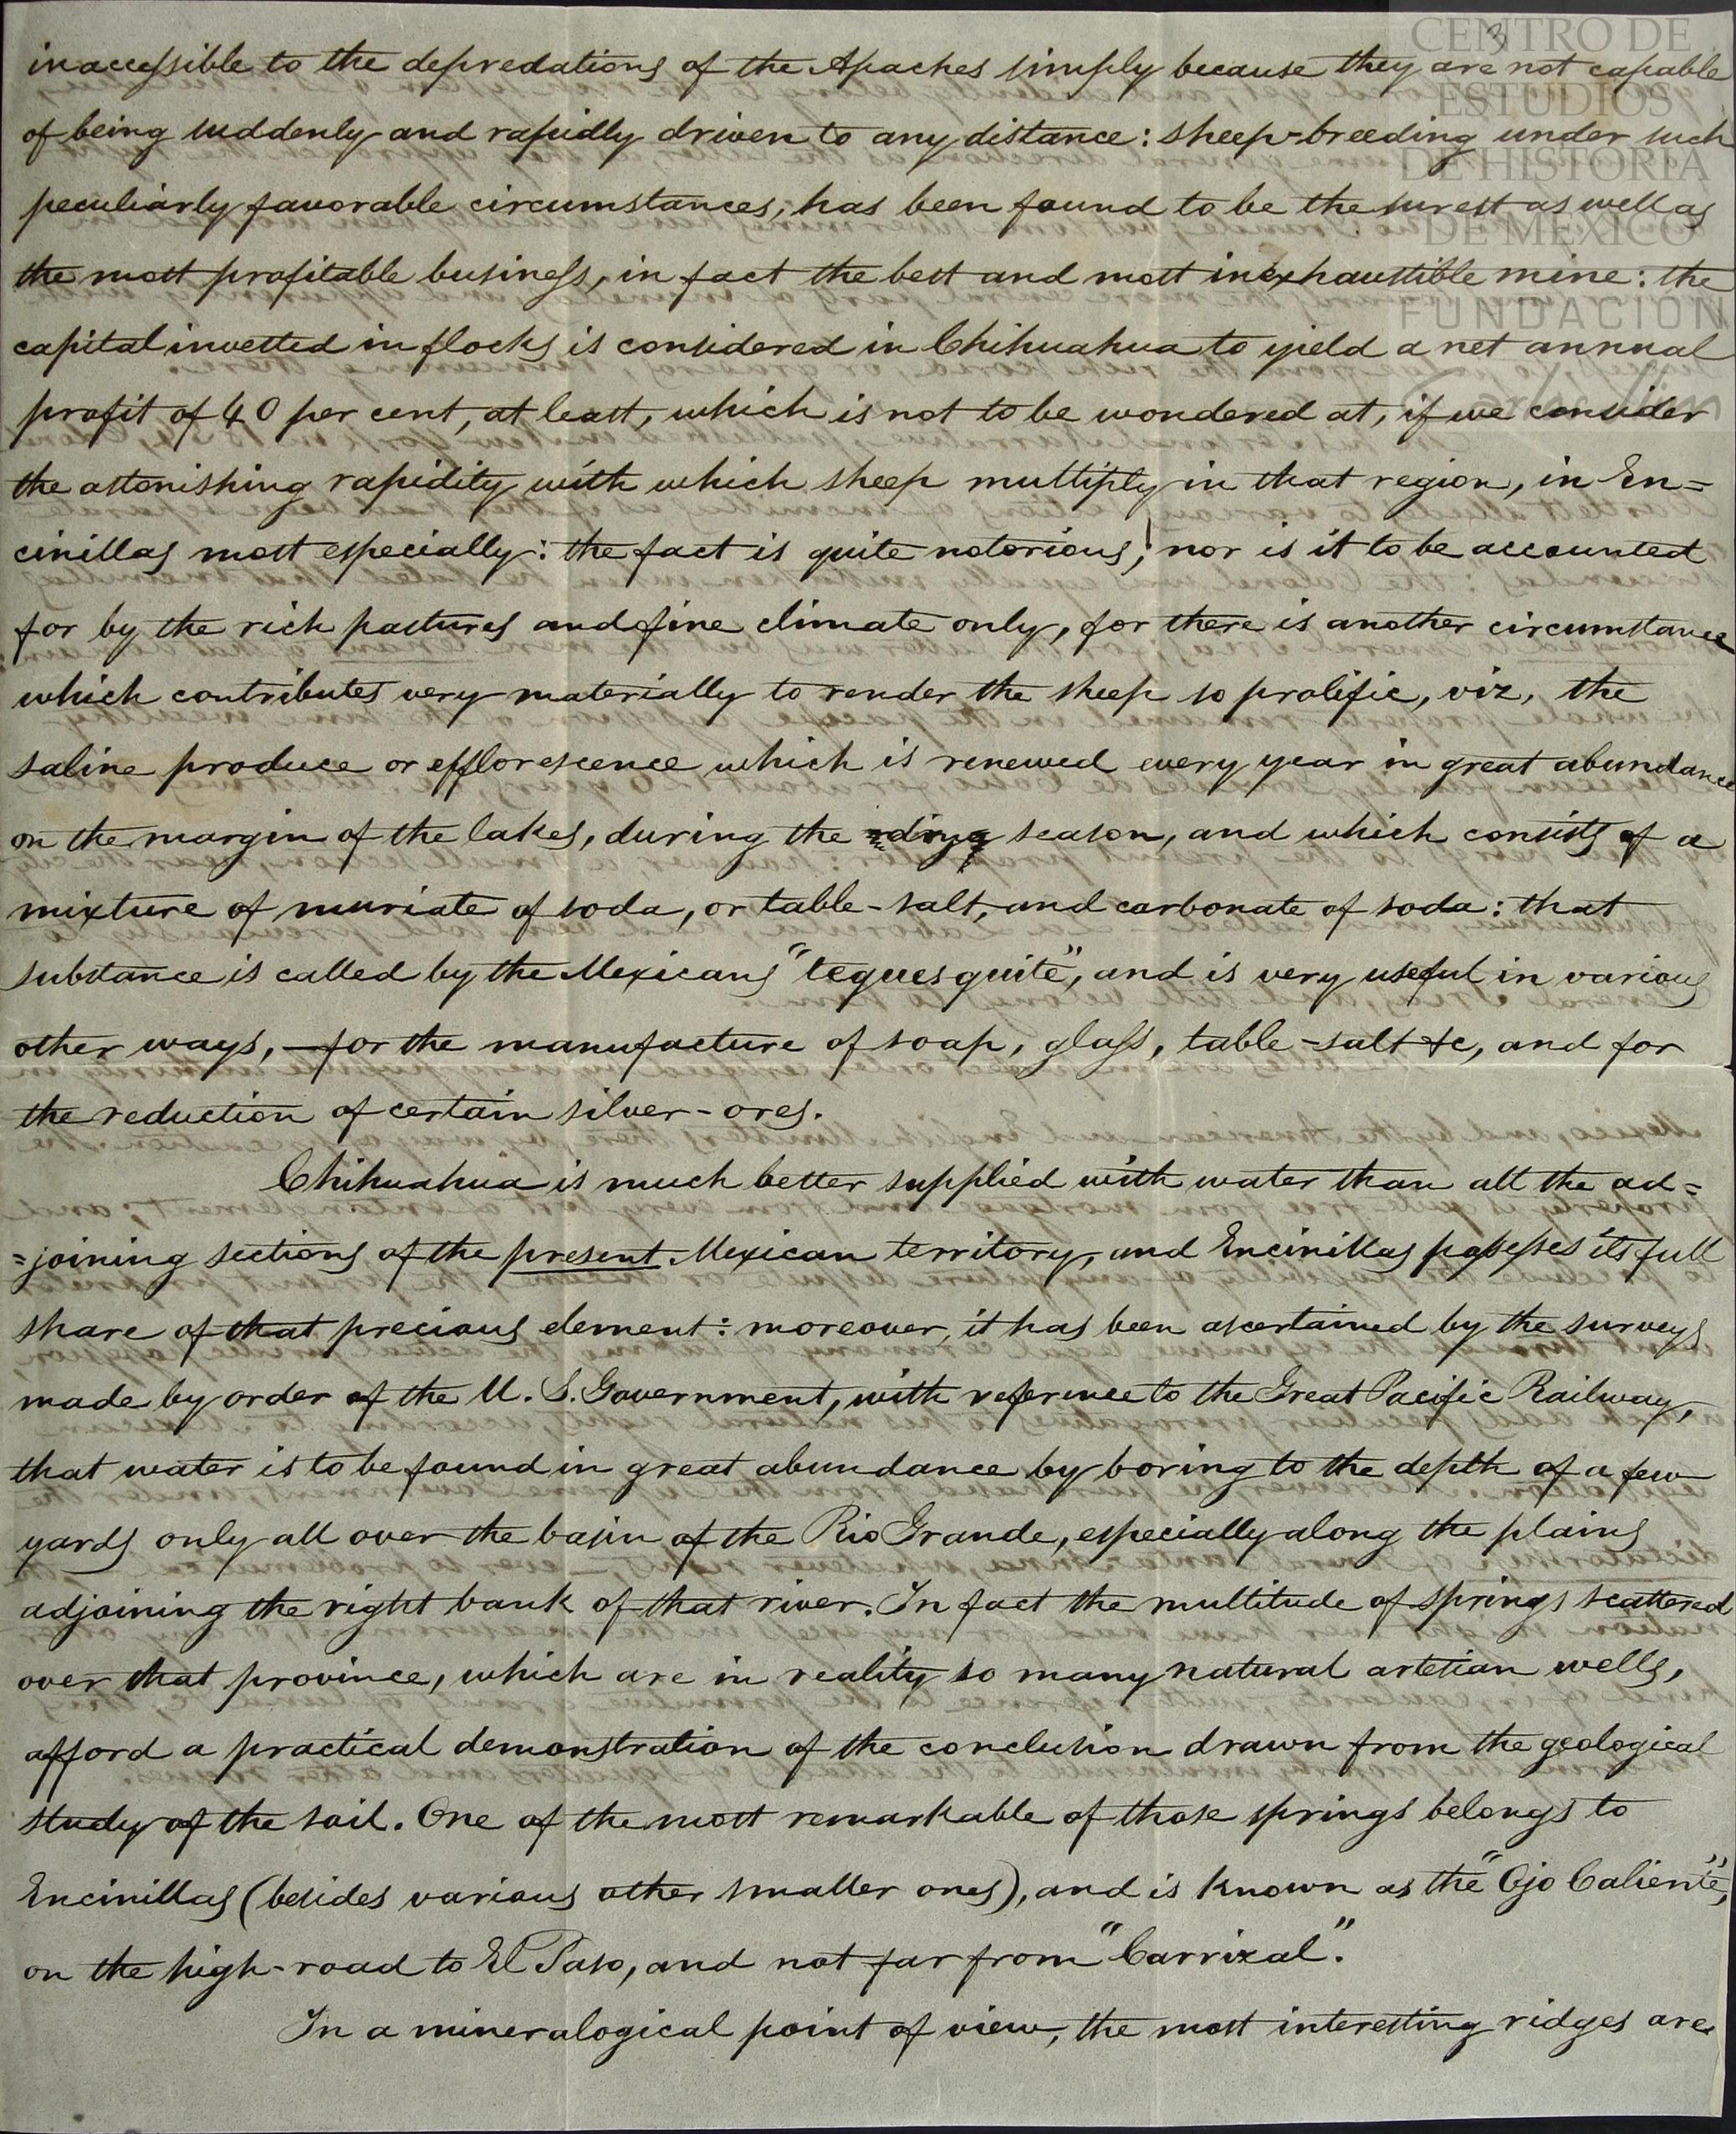 3
CENTRO DE
ESTUDIOS
DE HISTORIA
DE MEXICO
FUNDACION
Carlos Slim
inaccessible to the depredations of the Apaches simply because they are not capable
of being suddenly and rapidly driven to any distance: sheep-breeding under such
peculiarly favorable circumstances, has been found to be the surest as well as
the most profitable business, in fact the best and most inexhaustible mine: the
capital invested in flocks is considered in Chihuahua to yield a net annual
profit of 40 per cent, at least, which is not to be wondered at, if we consider
the astonishing rapidity with which sheep multiply in that region, in En=
cinillas most especially: the fact is quite notorious; nor is it to be accounted
for by the rich pastures and fine climate only, for there is another circumstance
which contributes very materially to render the sheep so prolific, viz, the
saline produce or efflorescence which is renewed every year in great abundance
on the margin of the lakes, during the dry season, and which consists of a
mixture of muriate of soda, or table-salt, and carbonate of soda: that
substance is called by the Mexicans "tequesquite", and is very useful in various
other ways, — for the manufacture of soap, glass, table-salt &c, and for
the reduction of certain silver-ores.
Chihuahua is much better supplied with water than all the ad=
=joining sections of the present Mexican territory, and Encinillas possesses its full
share of that precious element: moreover, it has been ascertained by the surveys
made by order of the U. S. Government, with reference to the Great Pacific Railway,
that water is to be found in great abundance by boring to the depth of a few
yards only all over the basin of the Rio Grande, especially along the plains
adjoining the right bank of that river. In fact the multitude of springs scattered
over that province, which are in reality so many natural artesian wells,
afford a practical demonstration of the conclusion drawn from the geological
study of the soil. One of the most remarkable of those springs belongs to
Encinillas (besides various other smaller ones), and is known as the "Ojo Caliente",
on the high-road to El Paso, and not far from "Carrizal".
In a mineralogical point of view, the most interesting ridges are